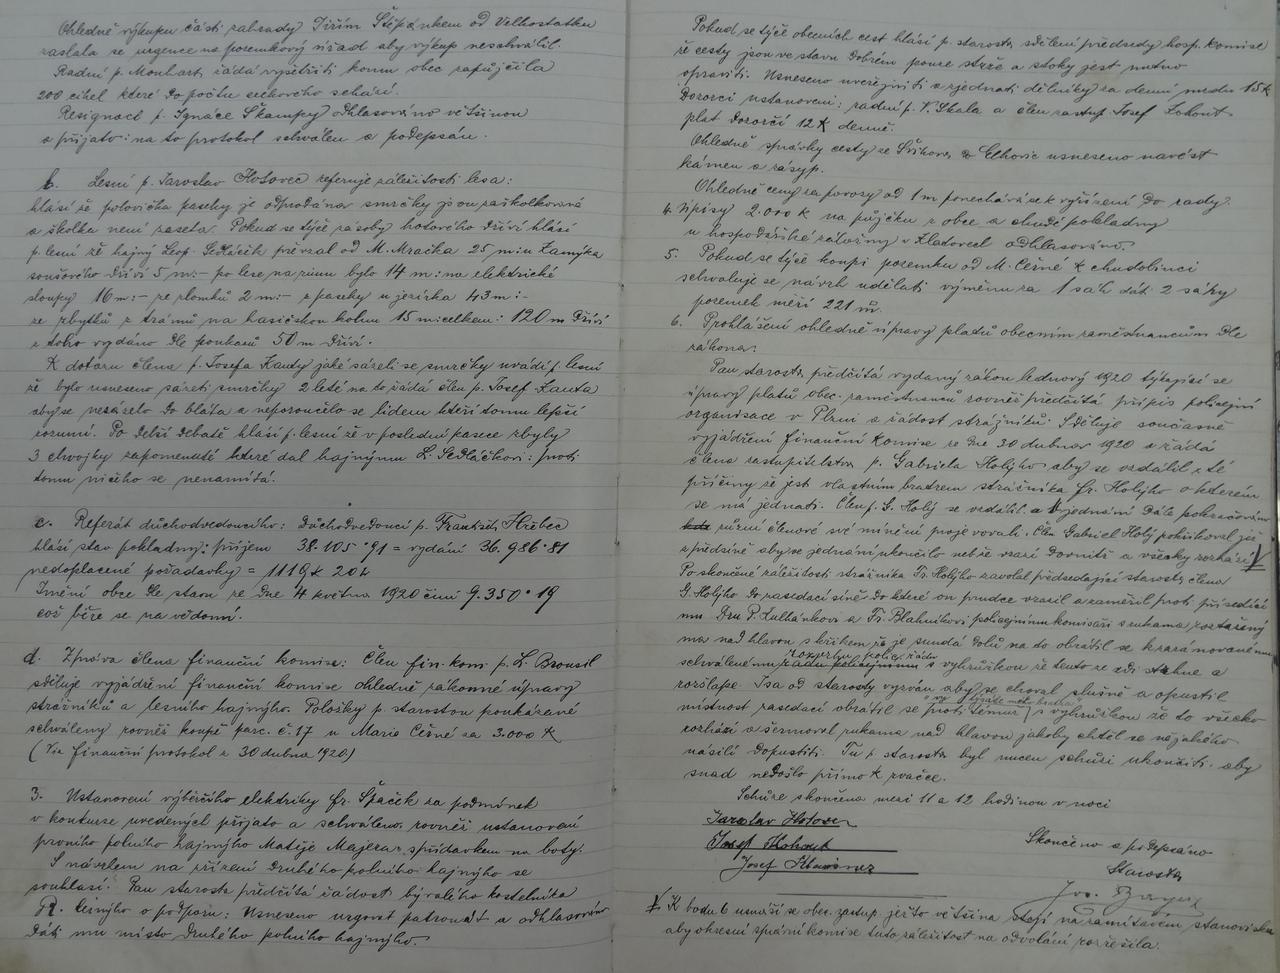 Ohledně výkupu části zahrady Jiřím Štěpánkem od Velkostatku
zaslala se urgence na pozemkový úřad aby výkup neschválil.
Radní p. Monhart žádá vyšetřiti komu obec zapůjčila
200 cihel které do počtu schází.
Resignace p. Ignáce Škampy odhlasováno většinou
a přijato: na to protokol schválen a podepsán.
b. Lesní p. Jaroslav Hotovec referuje záležitosti lesa:
hlásí že polovička paseky je odprodána smrčky jsou zaškolkovány
a školka není zaseta. Pokud se týče zásoby hotového dříví hlásí
p. lesní že hajný Leop. Sedláček převzal od M. Mračka 25 m
soušového dříví 5 m:– po lese na různu bylo 14 m: na elektrické
sloupy 16 m:– ze zlomků 2 m:– z paseky u jezírka 43 m:–
ze zbytků z trámů na hasičskou kolnu 15 m: celkem: 120 m dříví
z toho vydáno dle poukazů 50 m dříví.
K dotazu člena p. Josefa Kauty jaké sázeli se smrčky uvádí p. lesní
že bylo usneseno sázeti smrčky 2 leté na to žádá člen p. Josef Kauta
aby se nesázelo do bláta a neporoučelo se lidem kteří tomu lepší
rozumí. Po delší debatě hlásí p. lesní že v poslední pasece zbyly
3 chvojky zapomenuté které dal hajnýmu L. Sedláčkovi: proti
tomu ničeho se nenamítá.
c. Referát důchodvedoucího: Důchodvedoucí p. František Hříbec
hlásí stav pokladny: příjem 38.105·91 = vydání 36.986·81
nedoplacené pořadavky = 1119 K 20 h
Jmění obce dle stavu ze dne 4 května 1920 činí 9.350·19
což béře se na vědomí.
d. Zpráva člena finanční komise: Člen fin. kom p. L. Brousil
sděluje vyjádření finanční komise ohledně zákonné úpravy
strážníků a lesního hajnýho. Položky p. starostou poukázané
schváleny rovněž koupě parc. č. 17 u Marie Černé za 3.000 K
(Viz finanční protokol z 30 dubna 1920)
3. Ustanovení výběrčího elektriky Fr. Špaček za podmínek
v konkurse uvedených přijato a schváleno, rovněž ustanovení
prvního polního hajnýho Matěje Majera s přídavkem na boty.
S návrhem na zřízení druhého polního hajnýho se
souhlasí. Pan starosta předčítá žádost bývalého kostelníka
Černýho o podporu: Usneseno urgovat patronát a odhlasováno
dáti mu místo druhého polního hajnýho.
Pokud se týče obecních cest hlásí p. starosta sdělení předsedy hosp. komise
že cesty jsou ve stavu dobrém pouze strže a stoky jest nutno
opraviti. Usneseno uveřejniti a zjednati dělníky za denní mzdu 15 K
Dozorci ustanoveni: radní p. V. Skala a člen zastup Josef Kohout
plat dozorčí 12 K denně.
Ohledně správky cesty ze Elhovic usneseno navést
kámen a zásyp.
Ohledně ceny za povozy od 1 m ponechává se k vyřízení do rady.
4. Úpisy 2.000 K na půjčku z obce a chudé pokladny
u hospodářské záložny v odhlasováno.
5. Pokud se týče koupi pozemku od M. Černé k chudobinci
schvaluje se návrh udělati výměnu za 1 sáh dáti 2 sáhy
pozemek měří 221 m.
6. Prohlášení ohledně úpravy platů obecním zaměstnancům dle
zákona:
Pan starosta předčítá vydaný zákon lednový 1920 týkající se
úpravy platů obec. zaměstnanců rovněž předčítá přípis policejní
organisace v Plzni a žádost strážníků. Sděluje současně
vyjádření finanční komise ze dne 30 dubna 1920 a žádá
člena zastupitelstva p. Gabriela Holýho aby se vzdálil z té
příčiny že jest vlastním bratrem strážníka Fr. Holýho o kterém
se má jednati. Člen p. G. Holý se vzdálil a v jednání dále pokračováno
různí členové své mínění projevovali. Člen Gabriel Holý pokřikoval již
z předsíně aby se jednání ukončilo nebo že vrazí dovnitř a všecky rozhází V
Po skončené záležitosti strážníka Fr. Holýho zavolal předsedající starosta člena
G. Holýho do zasedací síně do které on prudce vrazil a zaměřil proti přísedící
mu Dru P. Kulhánkovi a Fr. Blahníkovi policejnímu komisaři s rukama roztažený
ma nad hlavou s křikem že je sundá dolů na to obrátil se k zarámovanému
rozvrhu polic. řádu
schválenému řádu policejnímu s vyhrůžkou že tento ze zdi strhne a
rozšlape. Jsa od starosty vyzván aby se choval slušně a opustil
místnost zasedací obrátil se proti témuž s vyhrůžkou že to všecko
rozhází a šermoval rukama nad hlavou jakoby chtěl se nějakého
násilí dopustiti. Tu p. starosta byl nucen schůzi ukončiti aby
snad nedošlo přímo k rvačce.
Schůze skončena mezi 11 a 12 hodinou v noci
Jaroslav Hotovec
Josef Kohout
Josef
Skončeno a podepsáno
Starosta
Jos.
V K bodu 6 usnáší se obec. zastup. ježto většina stojí na zamítavém stanovisku
aby okresní správní komise tuto záležitost na odvolání rozřešila.